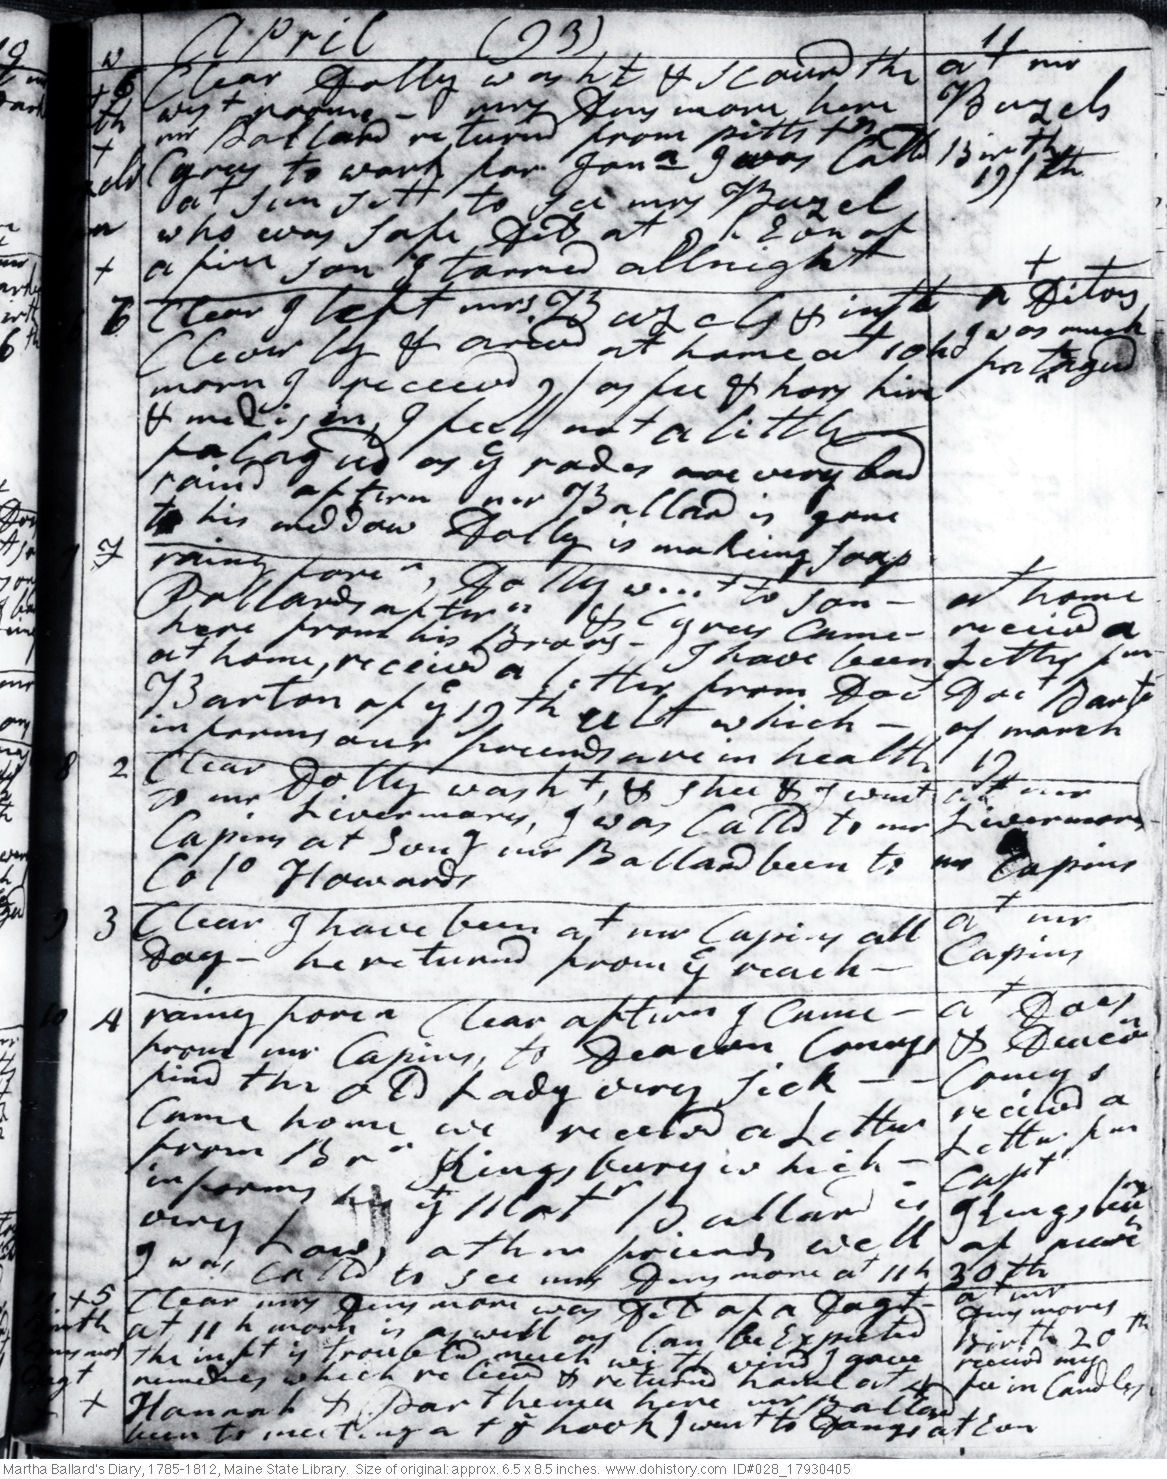 April (93)
11
w
+6
Clear Dolly washt & scourd the
west roome - mrs Densmore here
mr Ballard returnd from pittston
Cyrus to work for Jona I was Calld
at sun sett to see mrs Buzel
who was safe Delt at Evn of
a fine son I tarried all night
at mr
Buzels
Birth
19th
+
6
Clear I left mrs Buzels & infт
Cleverly & arivd at home at 10 h
morn I received 9/ as fee & hors hire
& medisin, I feell not a little
fatagud as ye rodes are very bad
raind aftern mr Ballard is gone
to his meddow Dolly is making soap
+ +
n Ditoes
I was much
fatagud
7 7
rainy foren, Dolly went to son
Ballards aftern & Cyrus Came
here from his Brors - I have been
at home, received a letter from Doct
Barton of ye 17th ult which -
informs our freinds are in health
at home
receivd a
Letter from
Doct Barto
of march
17
8 2
Clear Dolly washt, & shee & I went
to mr Livermores, I was Calld to mr
Capins at Evng mr Ballard been to
Colo Howards
at mr
Livermores
mr Capins
9 3
Clear I have been at mr Capins all
Day - he returnd from ye reach -
at mr
Capins
10 4
rainy foren Clear aftern I Came -
from mr Capins, to Deacon Conys
find the old Lady very sick - -
Came home we received a Letter
from Bror Kingsbury which -
informs us yt Mothr Ballard is
very Low, other friends well
I was Calld to see mrs Densmore at 11 h
at Does
& Deacon
Conys
received a
Letter from
Capt
Kingsbury
of
30th
+5
Birth
Clear mrs Densmore was Delt of a Dagt
at 11 h morn is as well as Can be Expected
the infт is troubld much with wind I gave
remdies which relievd & returnd home at
Hannah & Parthenia here mr Ballard
been to meeting at ye hook I went to at Evn
at mr
Densmores
Birth 20th
receivd my
fee in Candles
+
Martha Ballard's Diary, 1785-1812, Maine State Library. Size of original: approx. 6.5 x 8.5 inches. www.dohistory.com ID#028_17930405